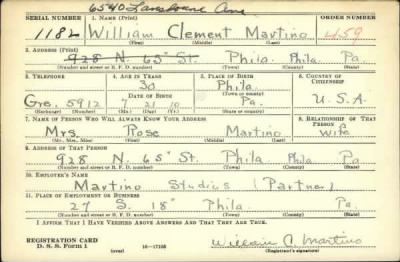 6540 Lansdowne Ave
SERIAL NUMBER 1. NAME (Print) ORDER NUMBER
1182 William Clement Martino 459
(First) (Middle) (Last)
2. ADDRESS (Print)
928 N. 65 St. Phila. Phila. Pa.
(Number and street or R. F. D. number) (Town) (County) (State)
3. TELEPHONE 4. AGE IN YEARS 5. PLACE OF BIRTH 6. COUNTRY OF CITIZENSHIP
30 Phila.
DATE OF BIRTH (Town or county)
Gre. 5912 7 21 10 Pa. U.S.A.
(Exchange) (Number) (Mo.) (Day) (Yr.) (State or country)
7. NAME OF PERSON WHO WILL ALWAYS KNOW YOUR ADDRESS 8. RELATIONSHIP OF THAT PERSON
Mrs. Rose Martino Wife
(Mr., Mrs., Miss) (First) (Middle) (Last)
9. ADDRESS OF THAT PERSON
928 N. 65 St. Phila. Phila. Pa.
(Number and street or R. F. D. number) (Town) (County) (State)
10. EMPLOYER'S NAME
Martino Studios (Partner)
11. PLACE OF EMPLOYMENT OR BUSINESS
27 S. 18 Phila Phila Pa.
(Number and street or R. F. D. number) (Town) (County) (State)
I AFFIRM THAT I HAVE VERIFIED ABOVE ANSWERS AND THAT THEY ARE TRUE.
REGISTRATION CARD
D. S. S. Form 1 (over) 16—17105 William C. Martino
(Registrant's signature)